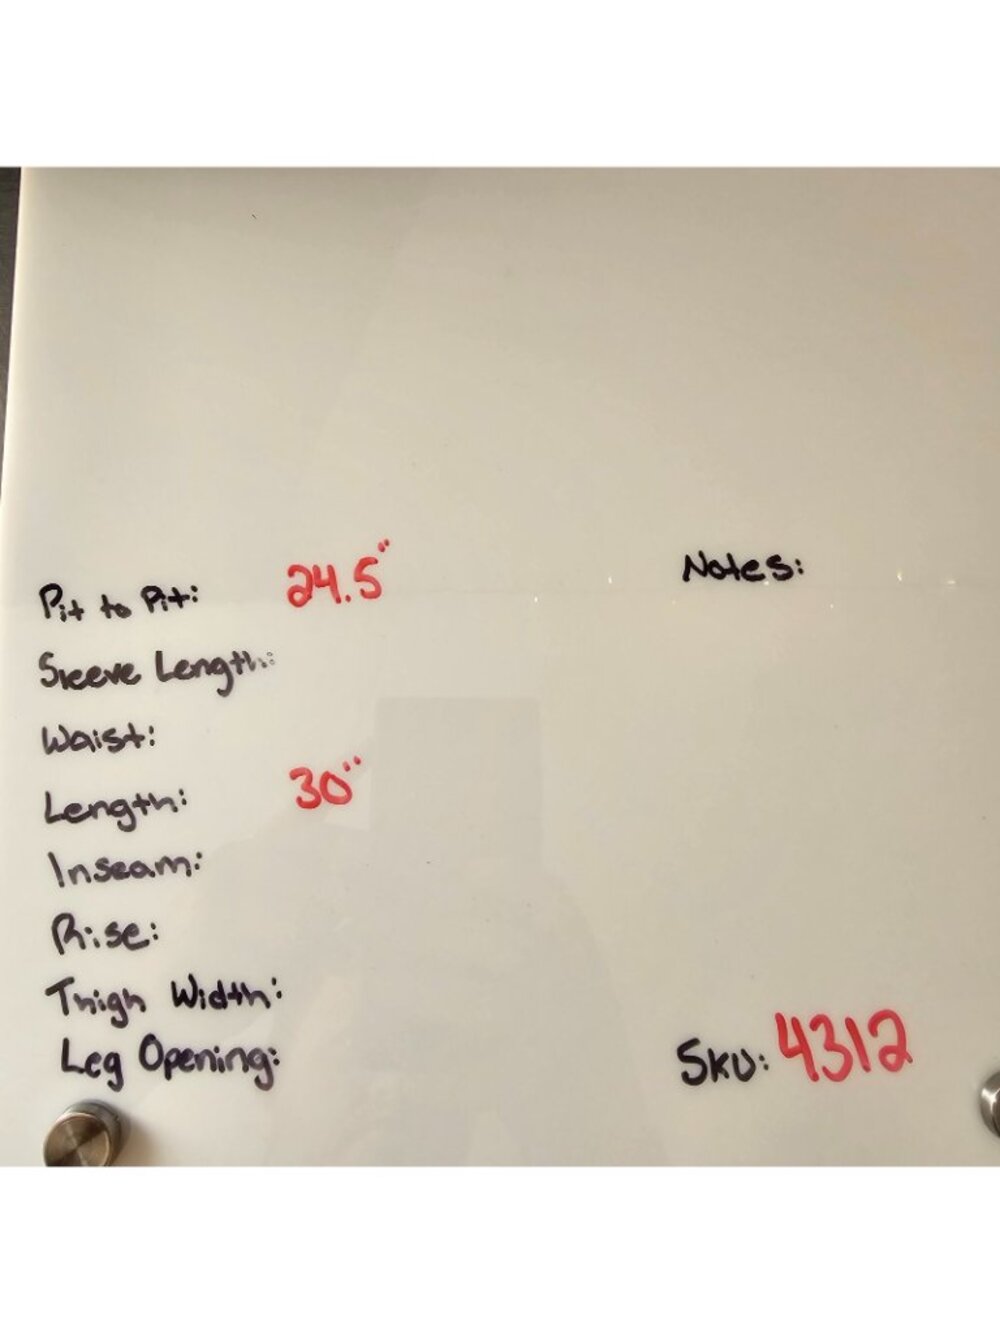 Pit to Pit: 24.5"
Notes:
Sleeve Length:
Waist:
Length: 30"
Inseam:
Rise:
Thigh Width:
Leg Opening:
SKU: 4312